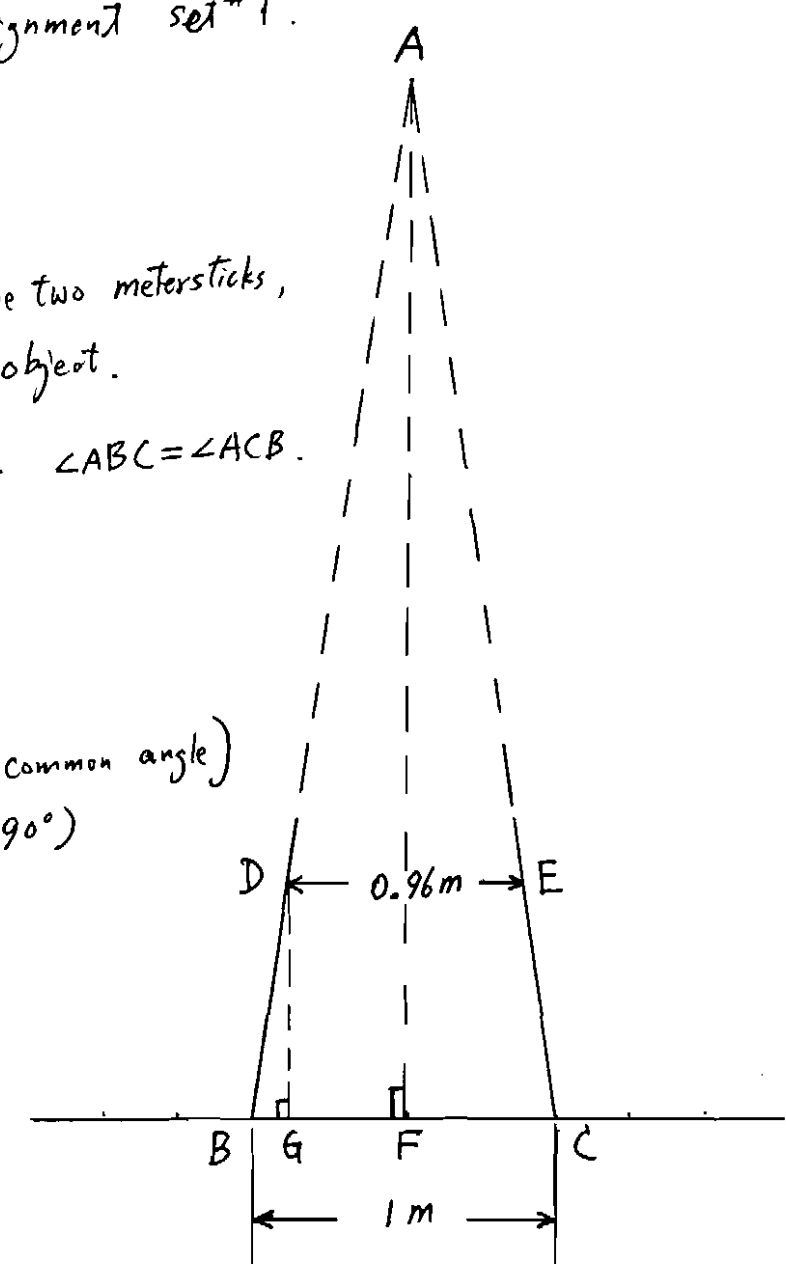 set #1.
A
two metersticks,
object.
∠ABC=∠ACB.
common angle)
90°)
D 0.96m E
B G F C
1 m